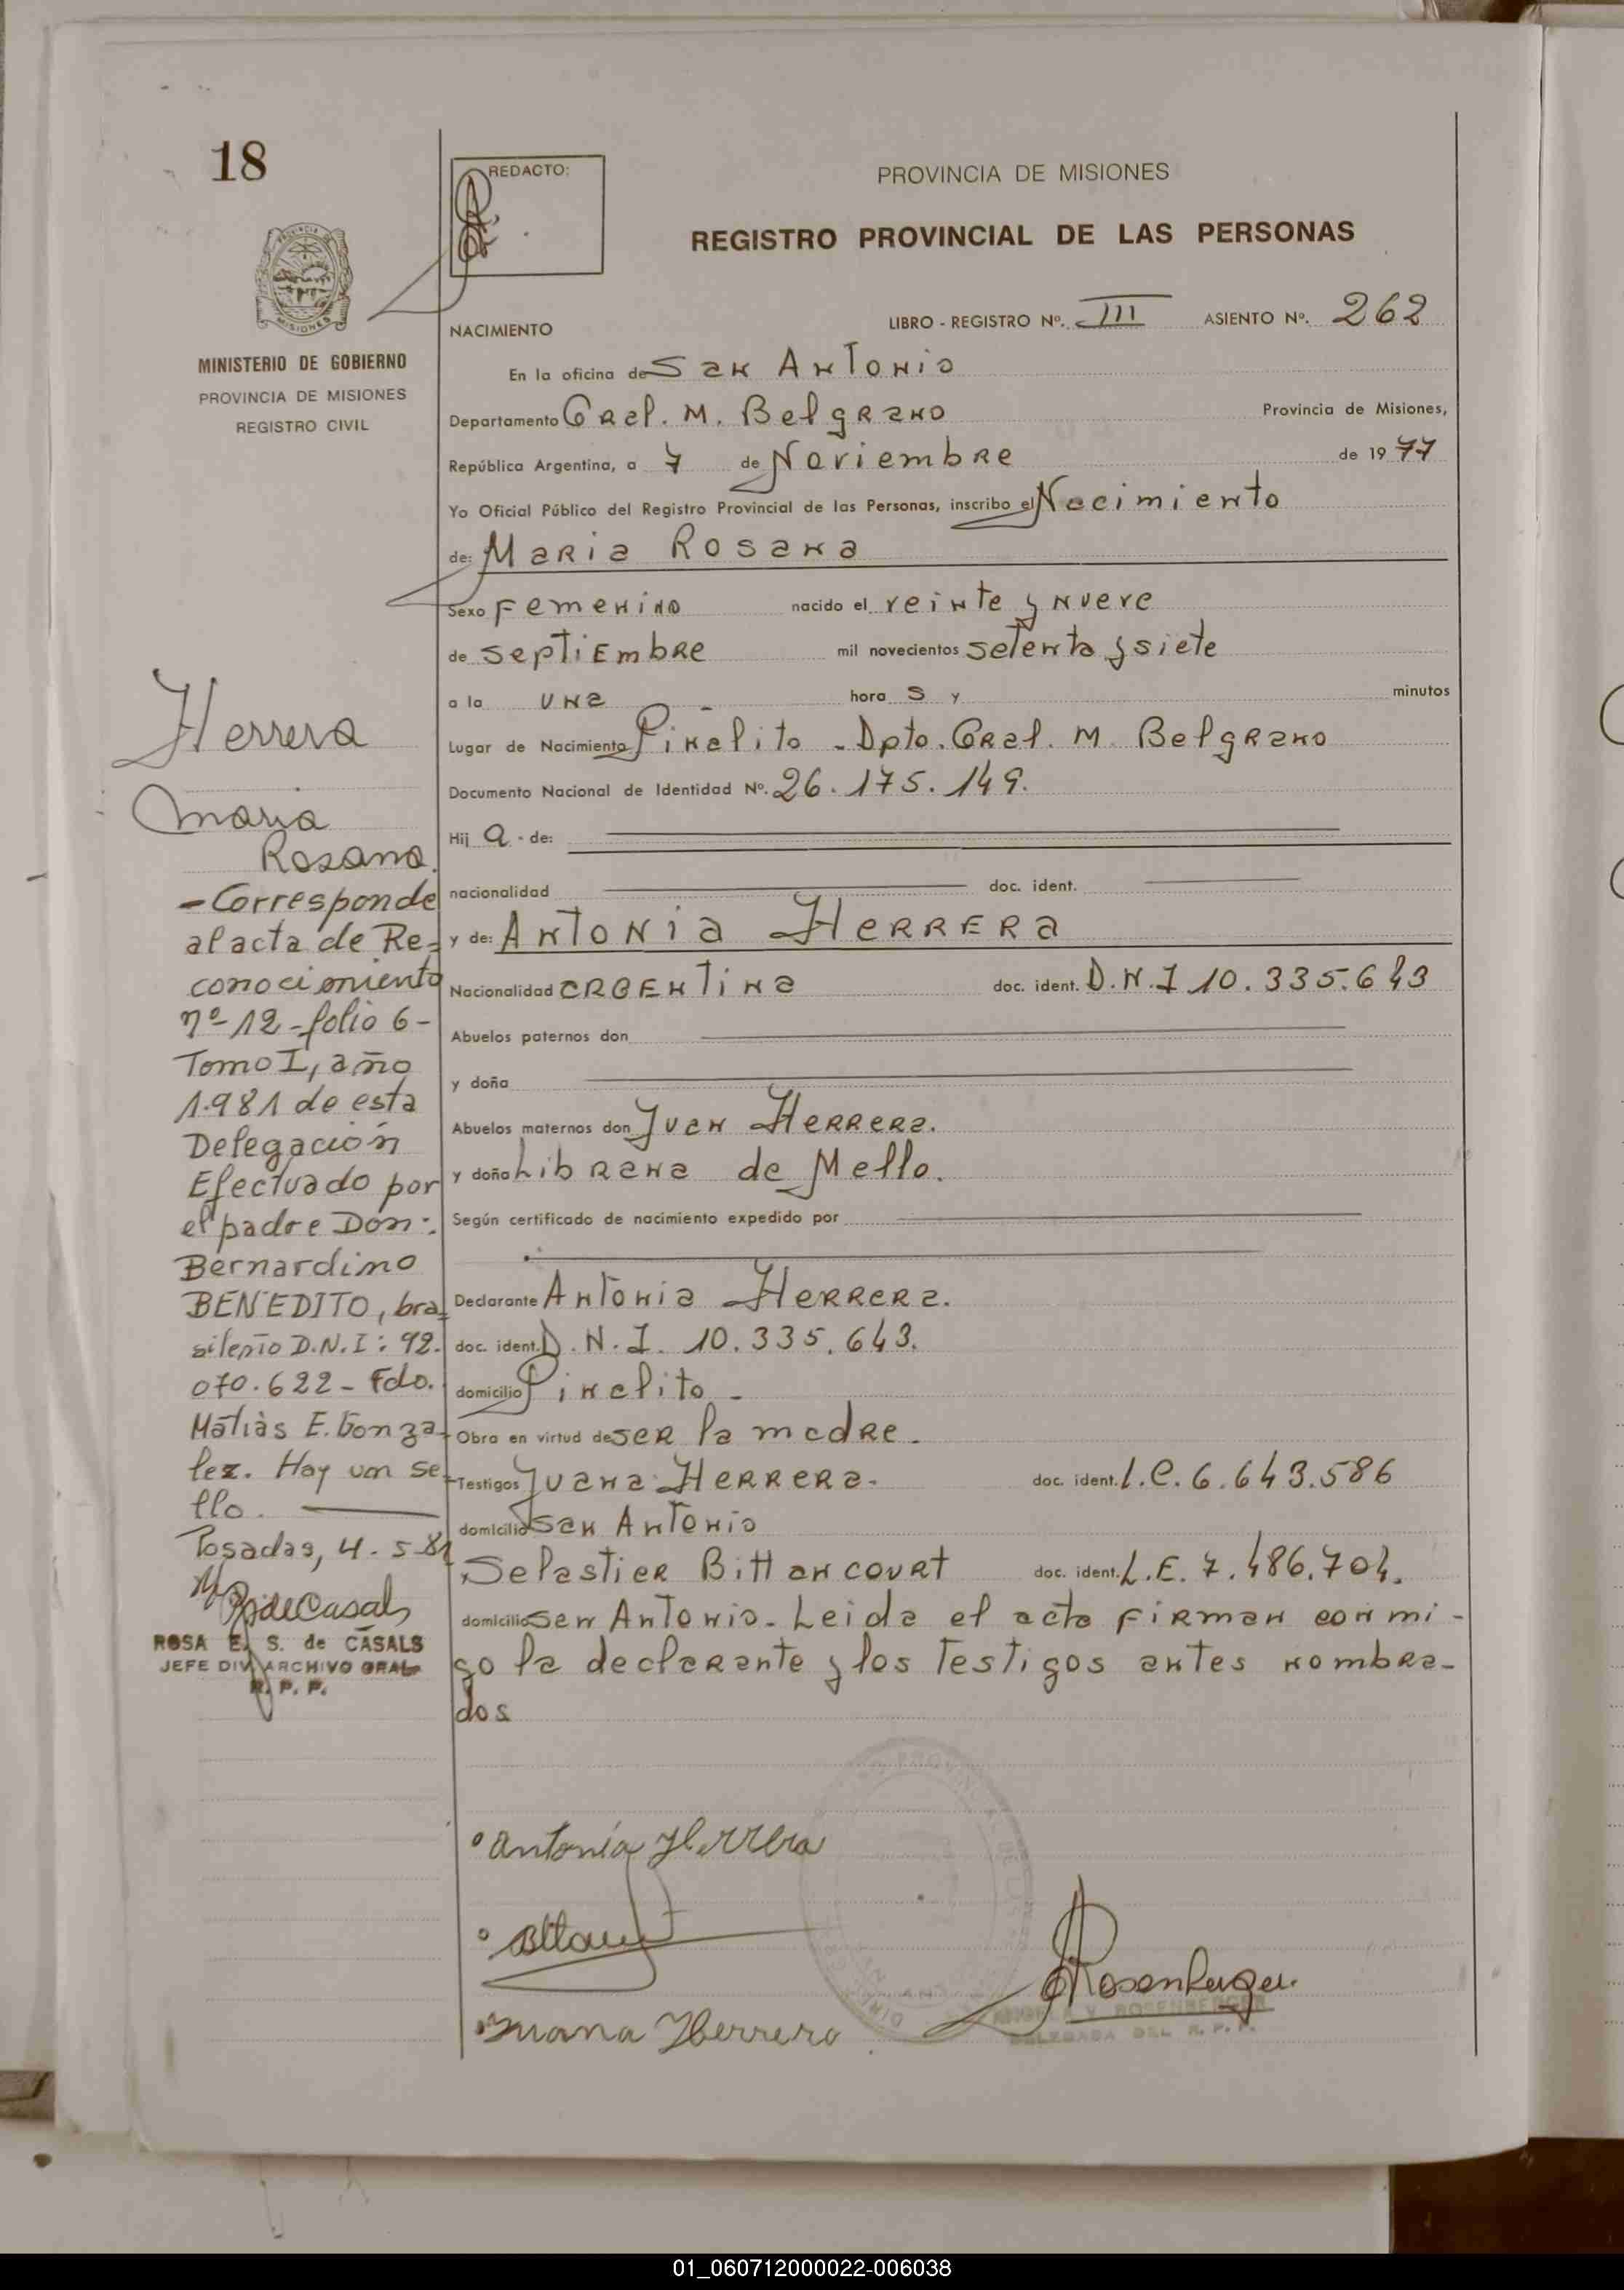 18
REDACTO:
PROVINCIA DE MISIONES
REGISTRO PROVINCIAL DE LAS PERSONAS
MISIONES
MINISTERIO DE GOBIERNO
PROVINCIA DE MISIONES
REGISTRO CIVIL
NACIMIENTO
LIBRO - REGISTRO Nº. III ASIENTO Nº. 262
En la oficina de San Antonio
Departamento Gral. M. Belgrano Provincia de Misiones,
República Argentina, a 7 de Noviembre de 1977
Yo Oficial Público del Registro Provincial de las Personas, inscribo el Nacimiento
de: Maria Rosana
Sexo Femenino nacido el veinte y nueve
de septiembre mil novecientos setenta y siete
a la una hora s y minutos
Lugar de Nacimiento Piñalito - Dpto. Gral. M. Belgrano
Documento Nacional de Identidad Nº. 26.175.149.
Hij a - de:
nacionalidad doc. ident.
y de: Antonia Herrera
Nacionalidad argentina doc. ident. D.N.I 10.335.643
Abuelos paternos don
y doña
Abuelos maternos don Juan Herrera.
y doña Librana de Mello.
Según certificado de nacimiento expedido por
Declarante Antonia Herrera.
doc. ident. D.N.I. 10.335.643.
domicilio Pinalito -
Obra en virtud de ser la madre.
Testigos Juana Herrera. doc. ident. L.C. 6.643.586
domicilio San Antonio
Selastier Bittancourt doc. ident. L.E. 7.486.704.
domicilio San Antonio. Leida el acta firman conmi-
go la declarante y los testigos antes nombra-
dos
Herrera
Maria
Rosana.
- Corresponde
al acta de Re=
conocimiento
nº 12 - folio 6 -
Tomo I, año
1.981 de esta
Delegación
Efectuado por
el padre Don:
Bernardino
BENEDITO, bra=
sileño D.N.I: 92.
070.622 - Fdo.
Matiàs E. Gonza-
lez. Hay un se-
llo.
Posadas, 4-5-81
RdeCasals
ROSA E. S. de CASALS
JEFE DIV. ARCHIVO GRAL.
R. P. P.
Antonia Herrera
Juana Herrera
Rosenberger
ROSENBERGER
DELEGADA DEL R. P. P.
01_060712000022-006038